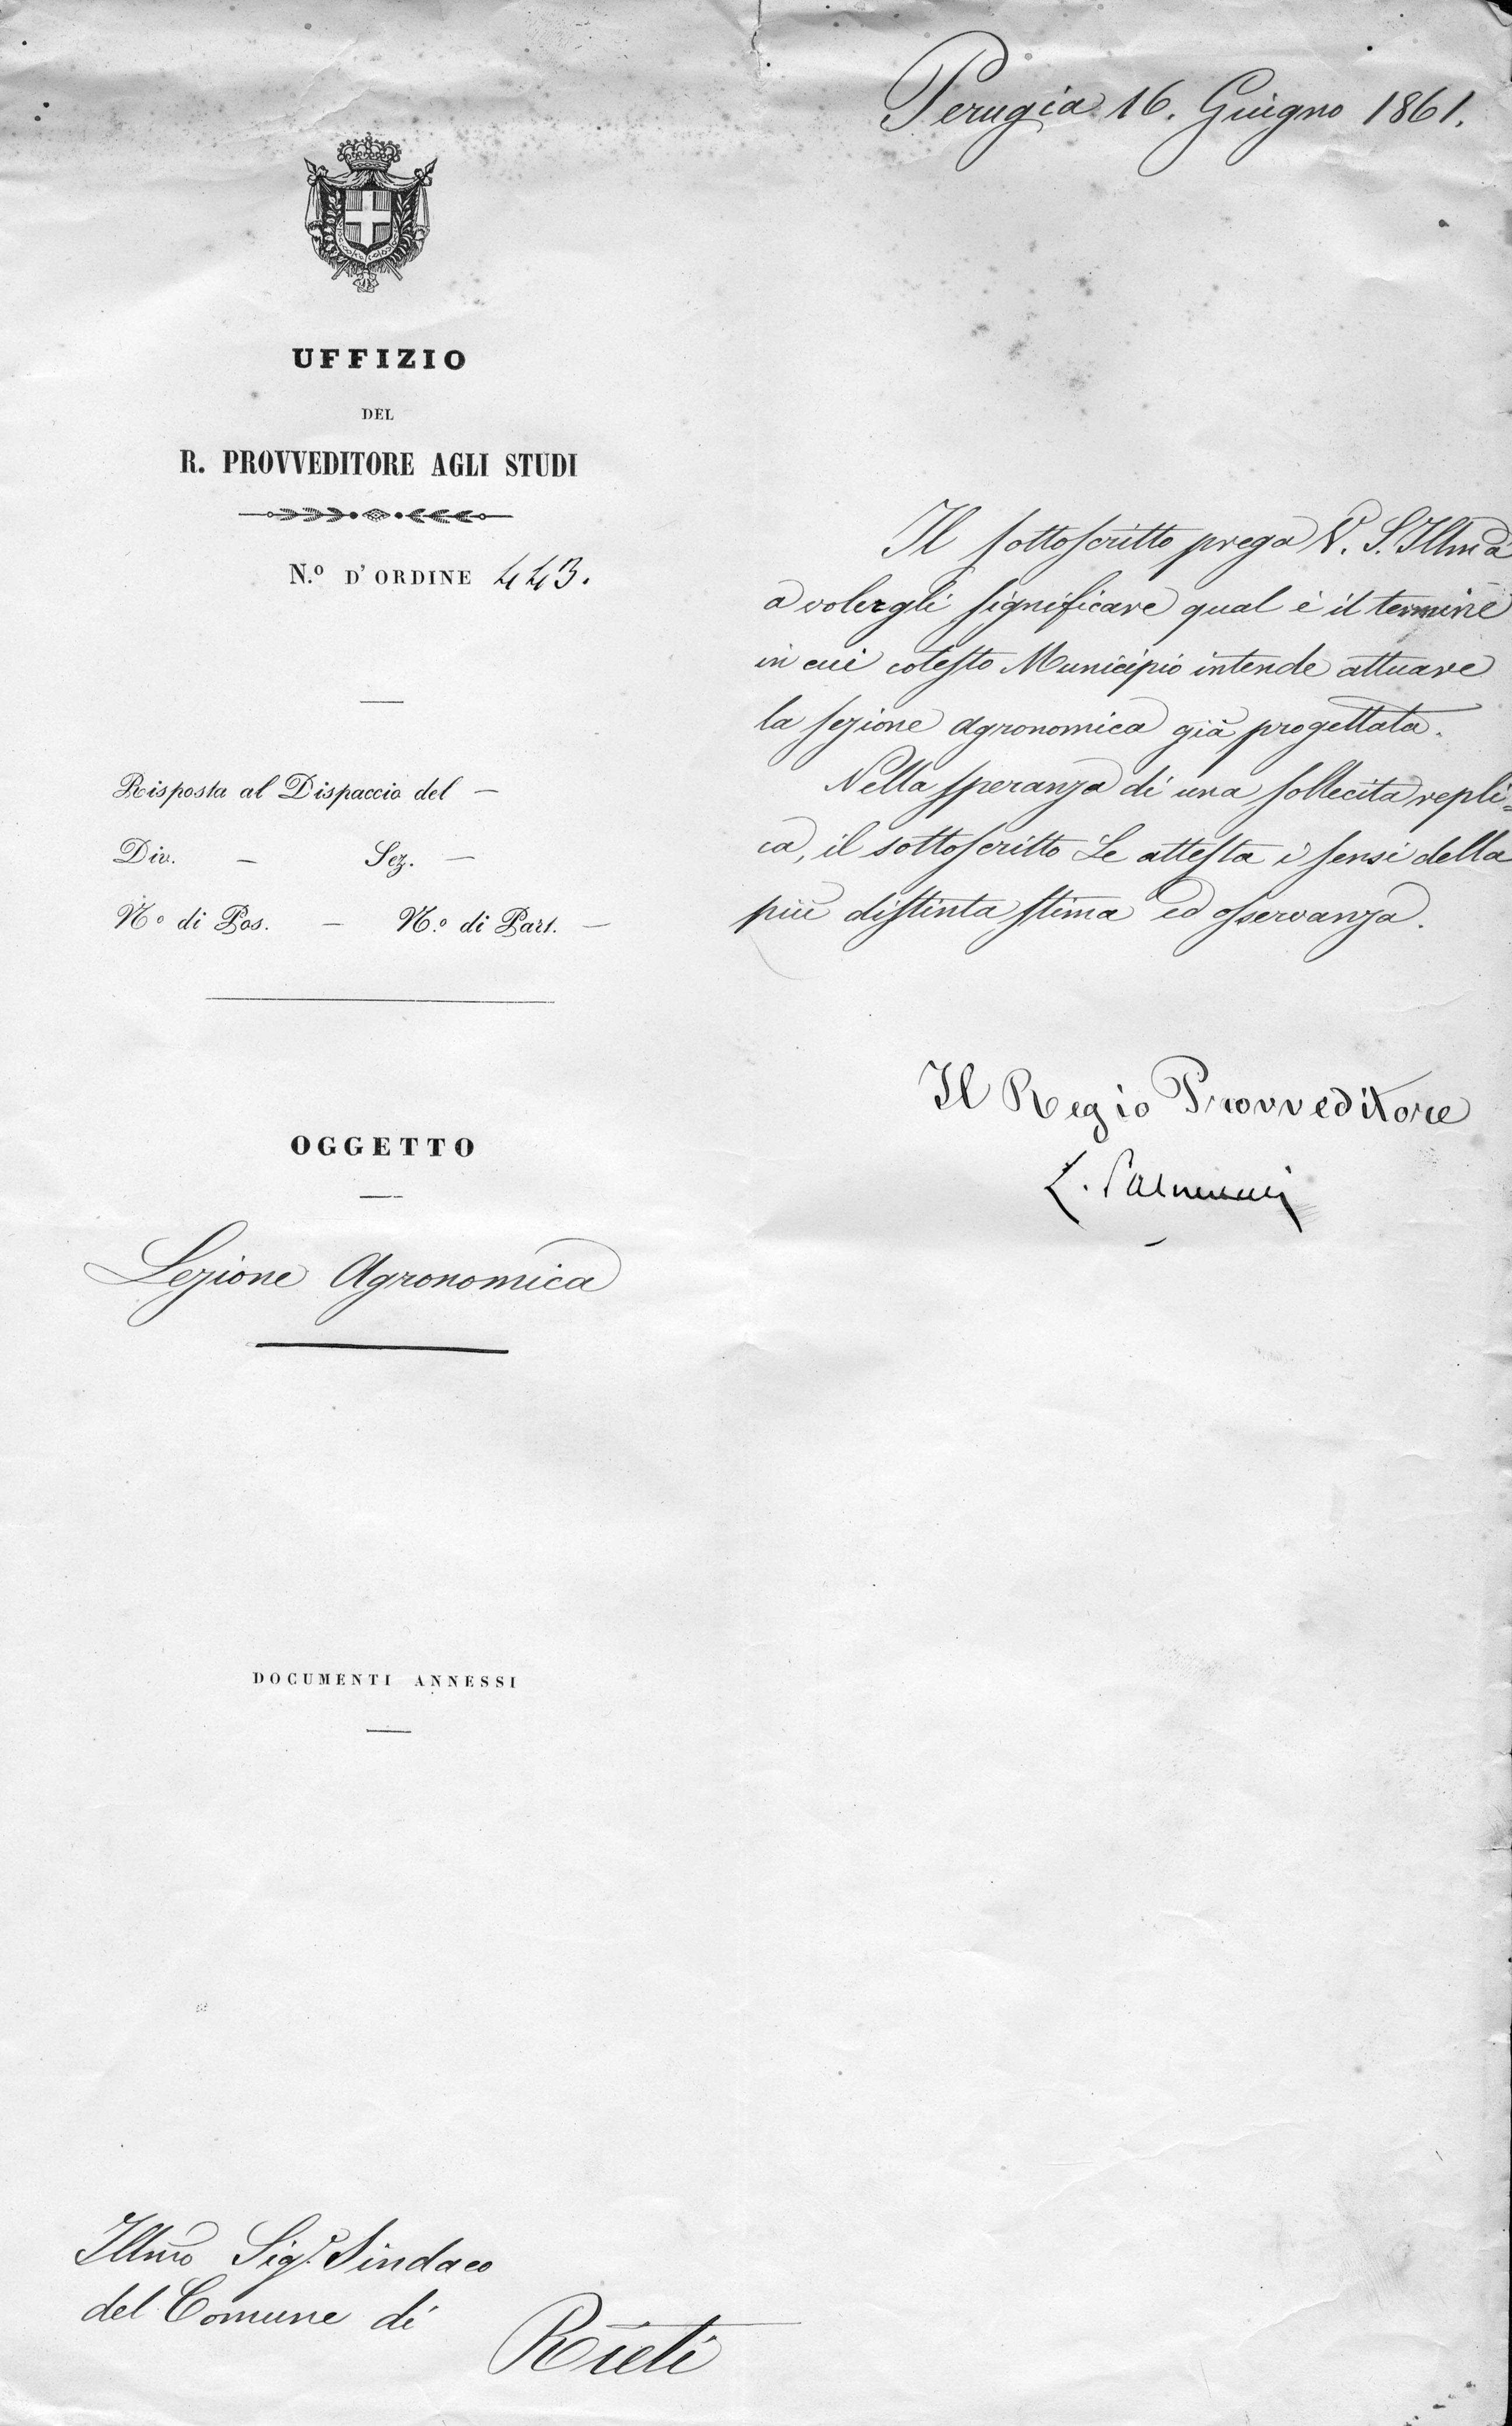 Perugia 16. Giugno 1861.
UFFIZIO
DEL
R. PROVVEDITORE AGLI STUDI
N.º D'ORDINE 443.
Risposta al Dispaccio del —
Div. — Sez. —
N.º di Pos. — N.º di Part. —
OGGETTO
Sezione Agronomica
DOCUMENTI ANNESSI
Illmo Sigr. Sindaco
del Comune di
Rieti
Il sottoscritto prega V. S. Illma
a volergli significare qual è il termine
in cui cotesto Municipio intende attuare
la sezione agronomica già progettata.
Nella speranza di una sollecita repli=
ca, il sottoscritto Le attesta i sensi della
più distinta stima ed osservanza.
Il Regio Provveditore
L.